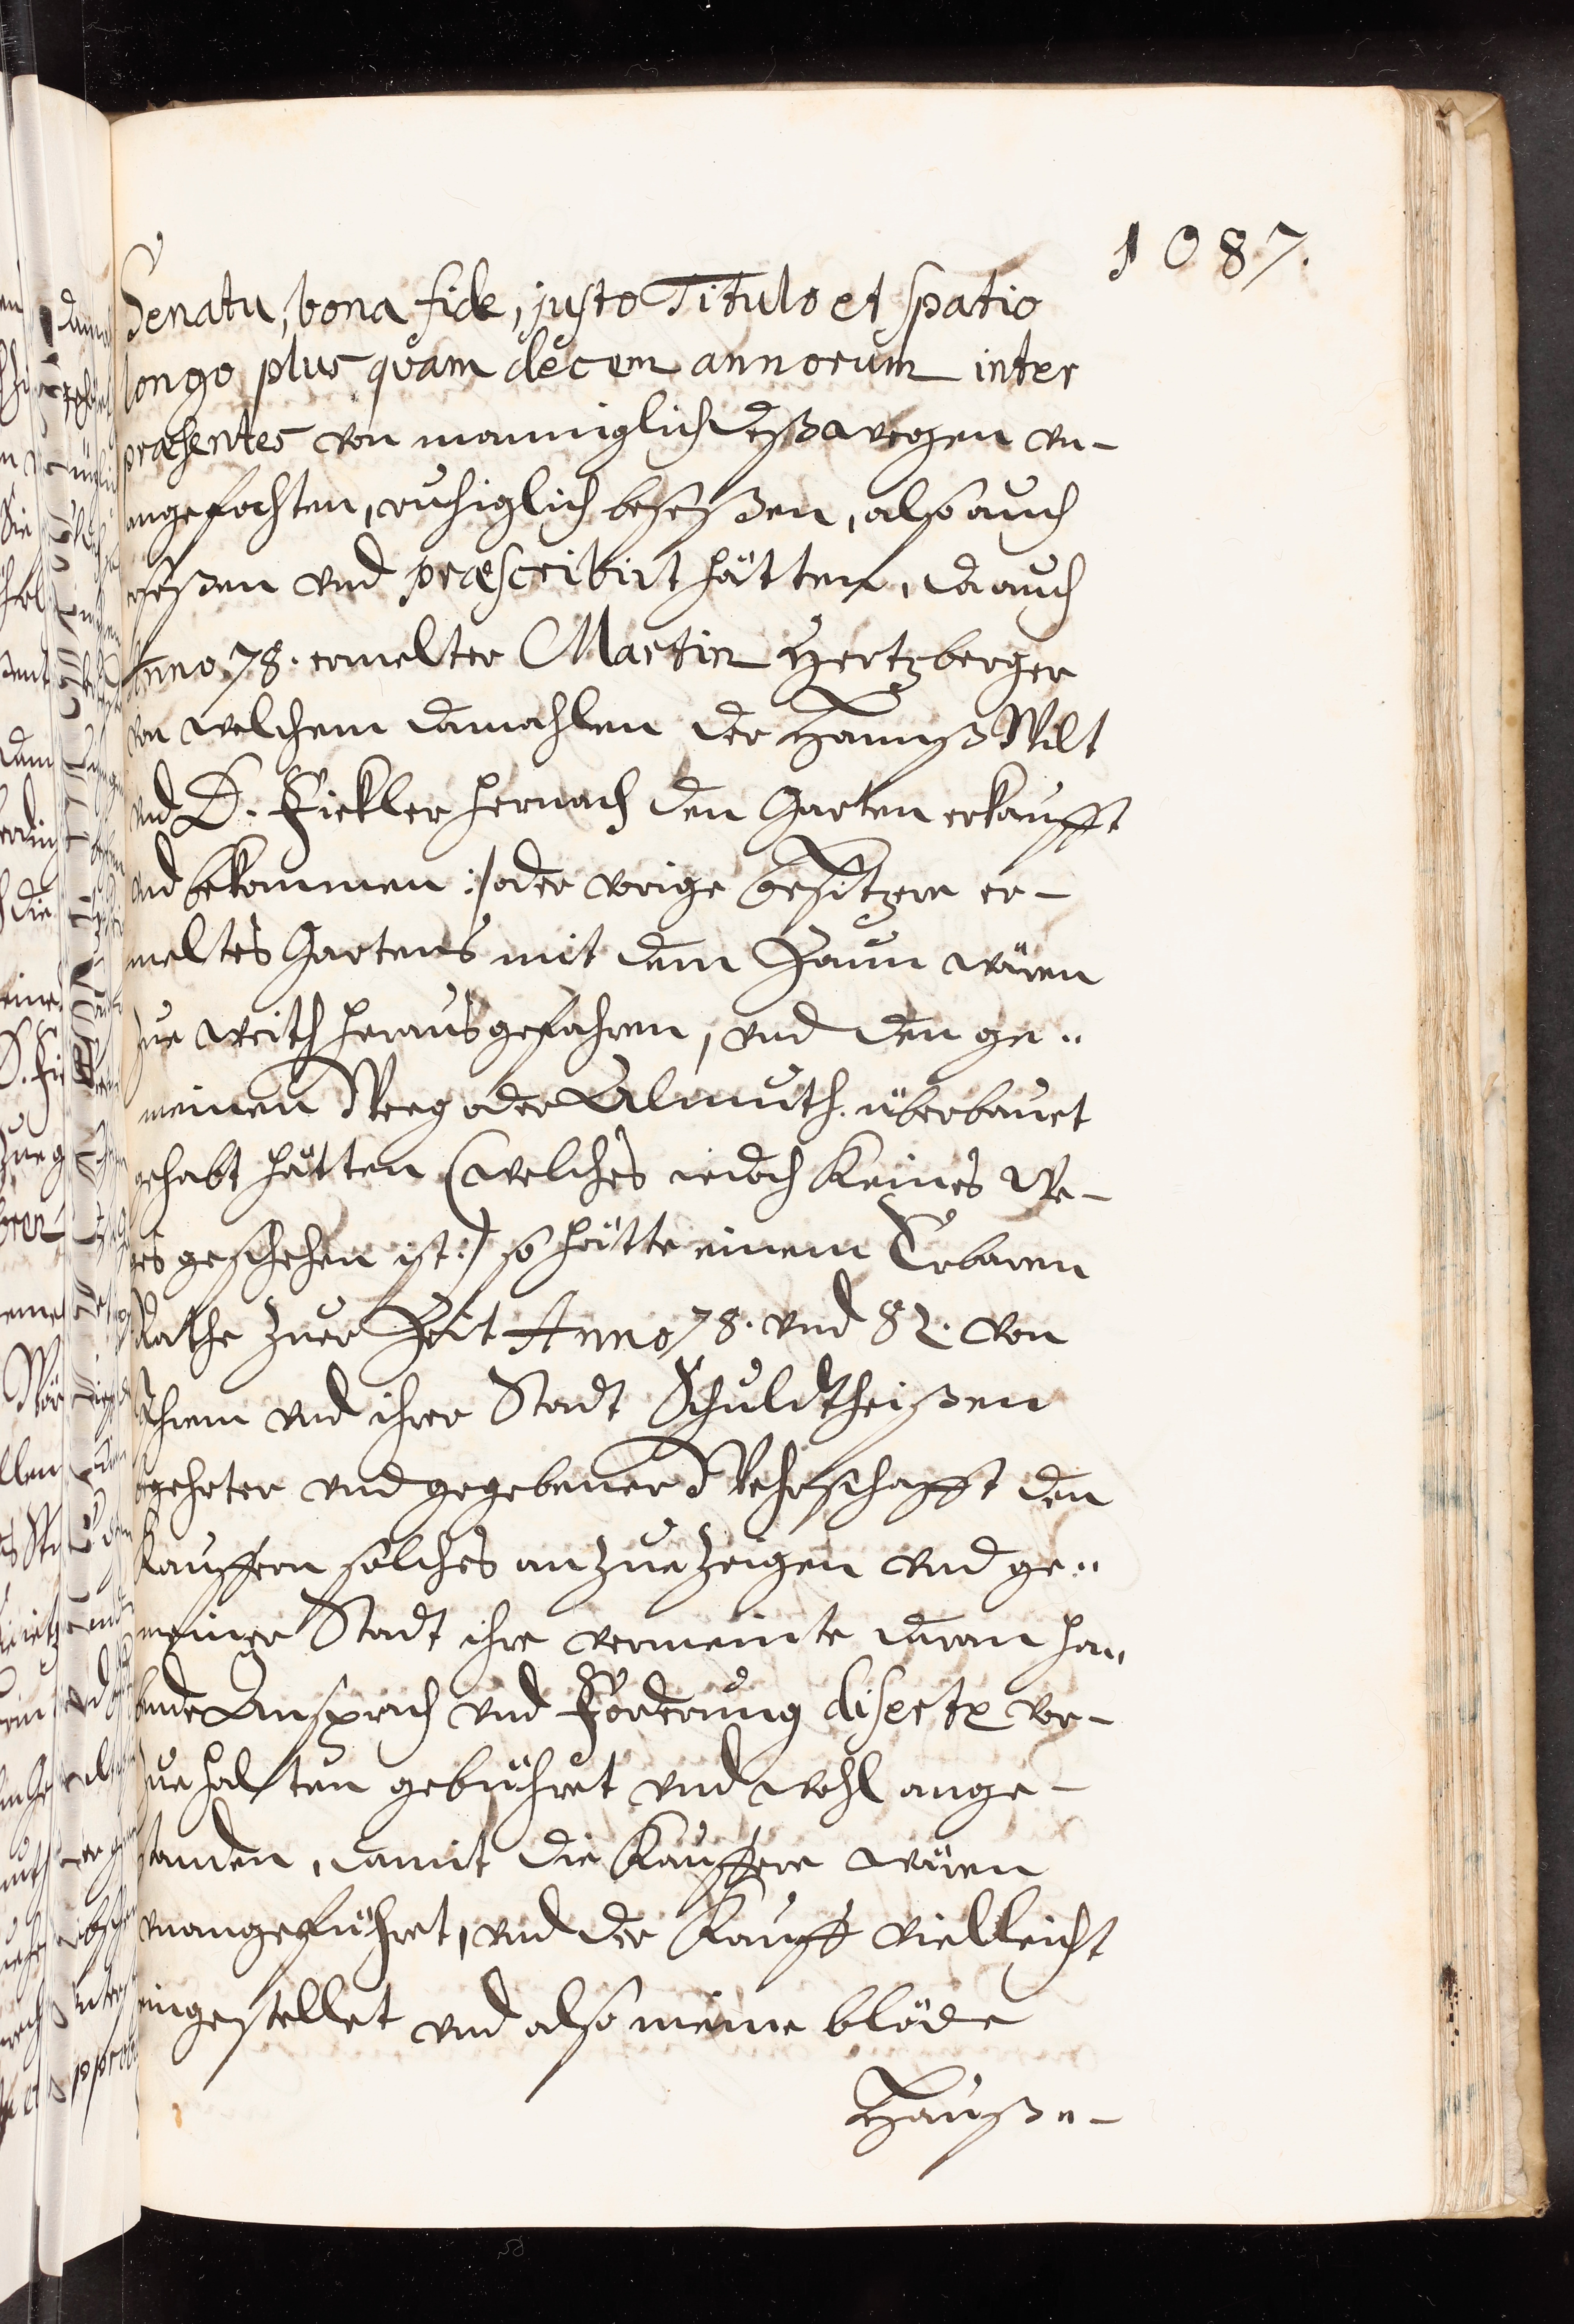 1087.
Senatu, bona fide, justo Titulo et spatio
longo plus quam decem annorum inter
præsentes von manniglich deßwegen vn-
angefochten, ruhiglich beseßen, also auch
erseßen vnd præscribirt hätten, da auch
Anno 78. ermelter Martin Hertzberger
von welchem damahlen der Hannß Wilt
vnd D. Fickler hernach den Garten erkaufft
vnd bekommen :/ oder vorige besitzere er-
meltes Gartens mit dem Zaun wären
zue weith herausgefahren, vnd den ge-
meinen Weeg oder Almuth überbauet
gehabt hätten (welches iedoch Keines We-
ges geschehen ist:) so hätte einem Erbaren
Rathe zuer Zeit Anno 78. vnd 82. von
Ihrem vnd ihrer Stadt Schuldtheißen
begehrter vnd gegebener Wehrschafft den
Kauffern solches anzuezeigen vnd ge-
meiner Stadt ihre vermeinte daran ha-
bende Ansprach vnd Forderung diserte vor-
zuehalten gebühret vnd wohl ange-
standen, damit die Kauffere wären
vnangeführet, vnd der Kauff vielleicht
eingestellet vnd also meine blöde
Hauß-